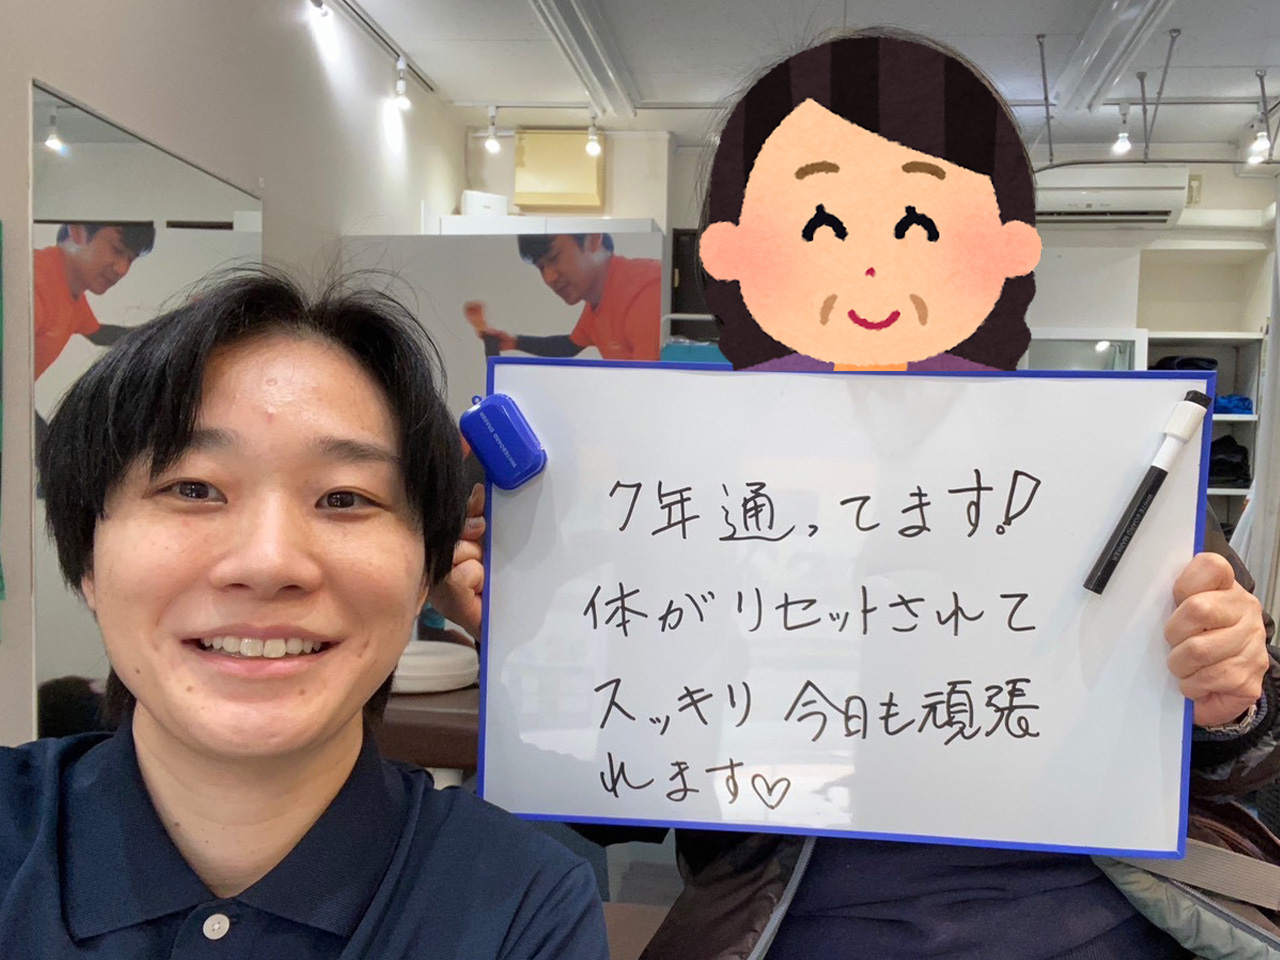 7年通ってます!
体がリセットされて
スッキリ 今日も頑張
れます♡
WHITEBOARD ERASER
WHITE BOARD MARKER